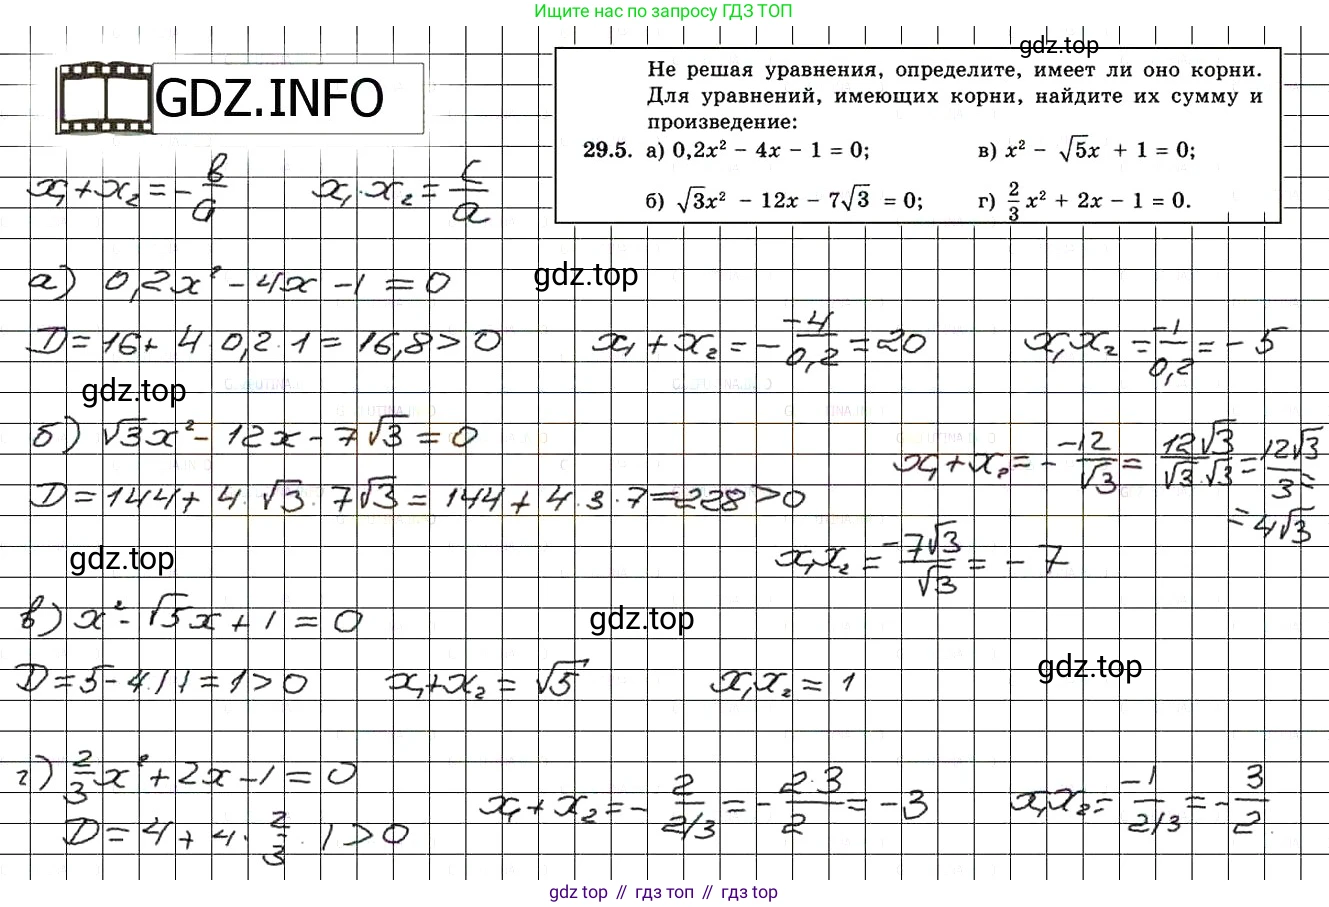 Ищите нас по запросу ГДЗ ТОП
GDZ.INFO
gdz.top
Не решая уравнения, определите, имеет ли оно корни.
Для уравнений, имеющих корни, найдите их сумму и
произведение:
29.5. а) 0,2x² − 4x − 1 = 0; в) x² − √5x + 1 = 0;
б) √3x² − 12x − 7√3 = 0; г) 2/3 x² + 2x − 1 = 0.
x₁ + x₂ = − в/a x₁·x₂ = c/a
а) 0,2x² − 4x − 1 = 0
gdz.top
D = 16 + 4·0,2·1 = 16,8 > 0 x₁ + x₂ = − −4/0,2 = 20 x₁x₂ = −1/0,2 = −5
gdz.top
б) √3x² − 12x − 7√3 = 0
x₁ + x₂ = − −12/√3 = 12√3/√3·√3 = 12√3/3 =
= 4√3
D = 144 + 4·√3·7√3 = 144 + 4·3·7 = 228 > 0
x₁x₂ = −7√3/√3 = −7
gdz.top
в) x² − √5x + 1 = 0
gdz.top
D = 5 − 4·1·1 = 1 > 0 x₁ + x₂ = √5 x₁x₂ = 1
gdz.top
г) 2/3 x² + 2x − 1 = 0
D = 4 + 4·2/3·1 > 0 x₁ + x₂ = − 2/2/3 = − 2·3/2 = −3 x₁x₂ = −1/2/3 = − 3/2
gdz top // гдз топ // гдз top